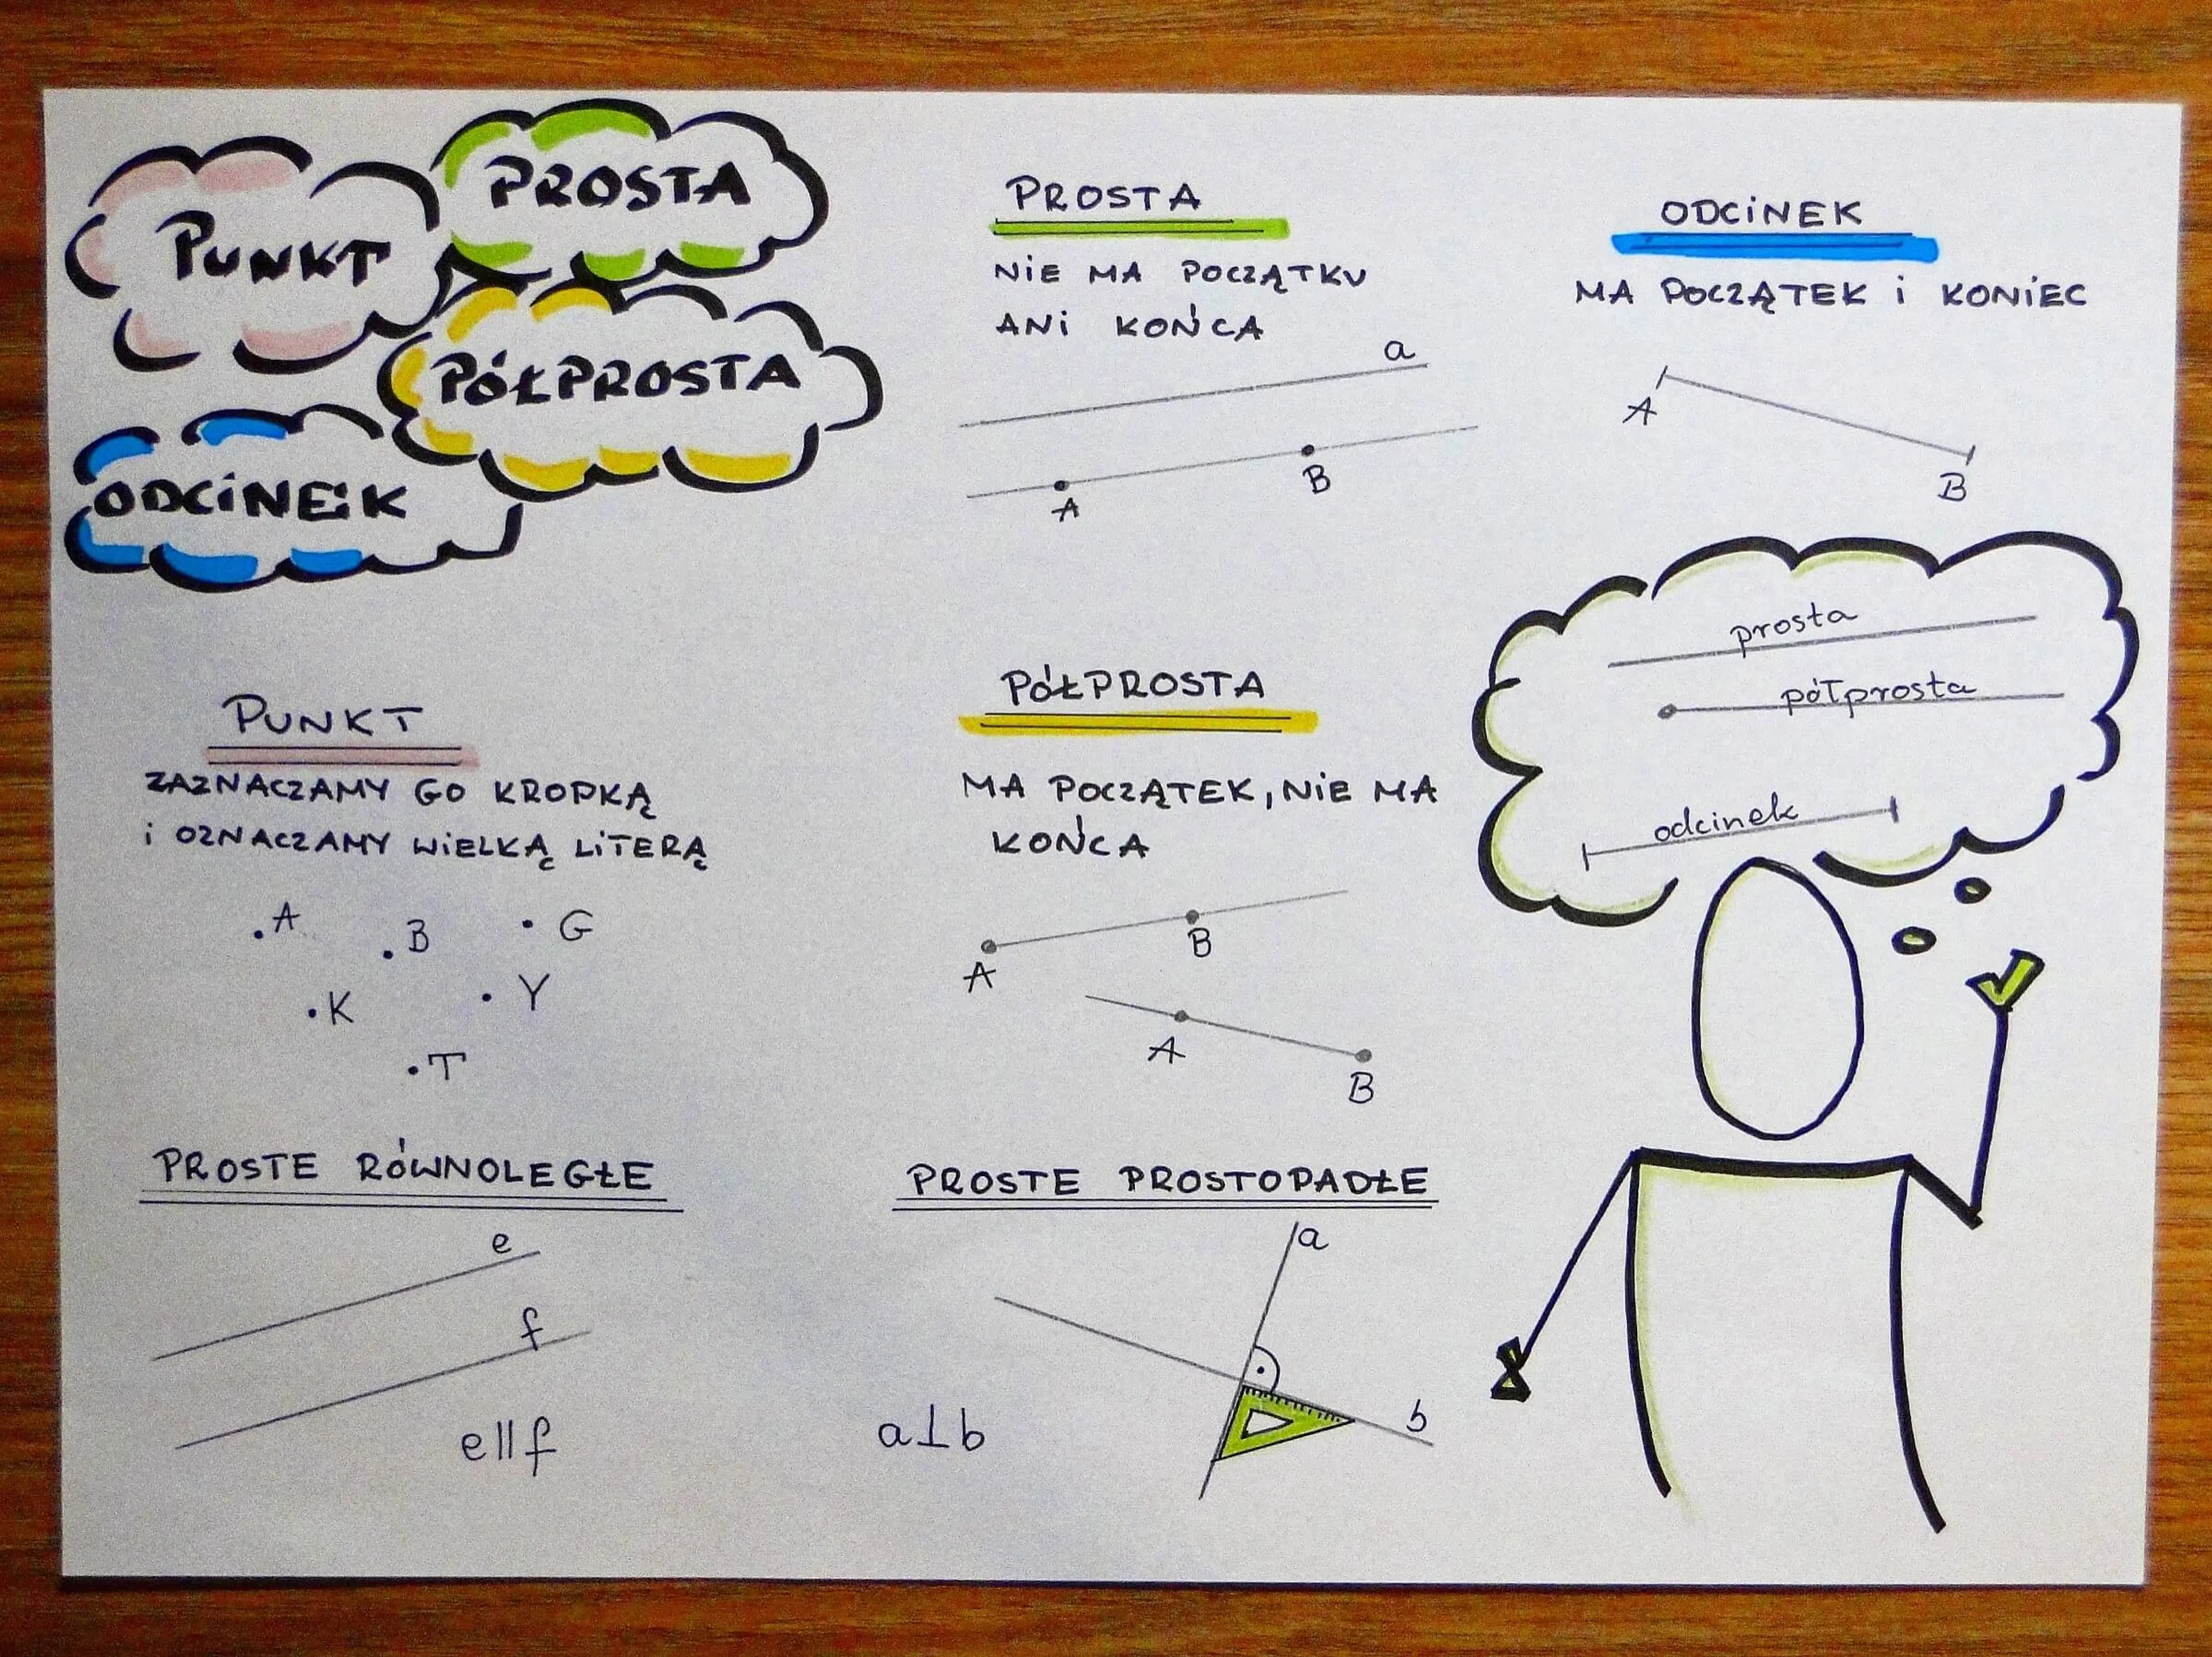 PUNKT
PROSTA
PÓŁPROSTA
ODCINEK
PROSTA
NIE MA POCZĄTKU
ANI KOŃCA
a
A
B
ODCINEK
MA POCZĄTEK I KONIEC
A
B
PUNKT
ZAZNACZAMY GO KROPKĄ
I OZNACZAMY WIELKĄ LITERĄ
A
B
G
K
Y
T
PÓŁPROSTA
MA POCZĄTEK, NIE MA
KOŃCA
A
B
A
B
prosta
półprosta
odcinek
PROSTE RÓWNOLEGŁE
e
f
e||f
PROSTE PROSTOPADŁE
a
b
a⊥b